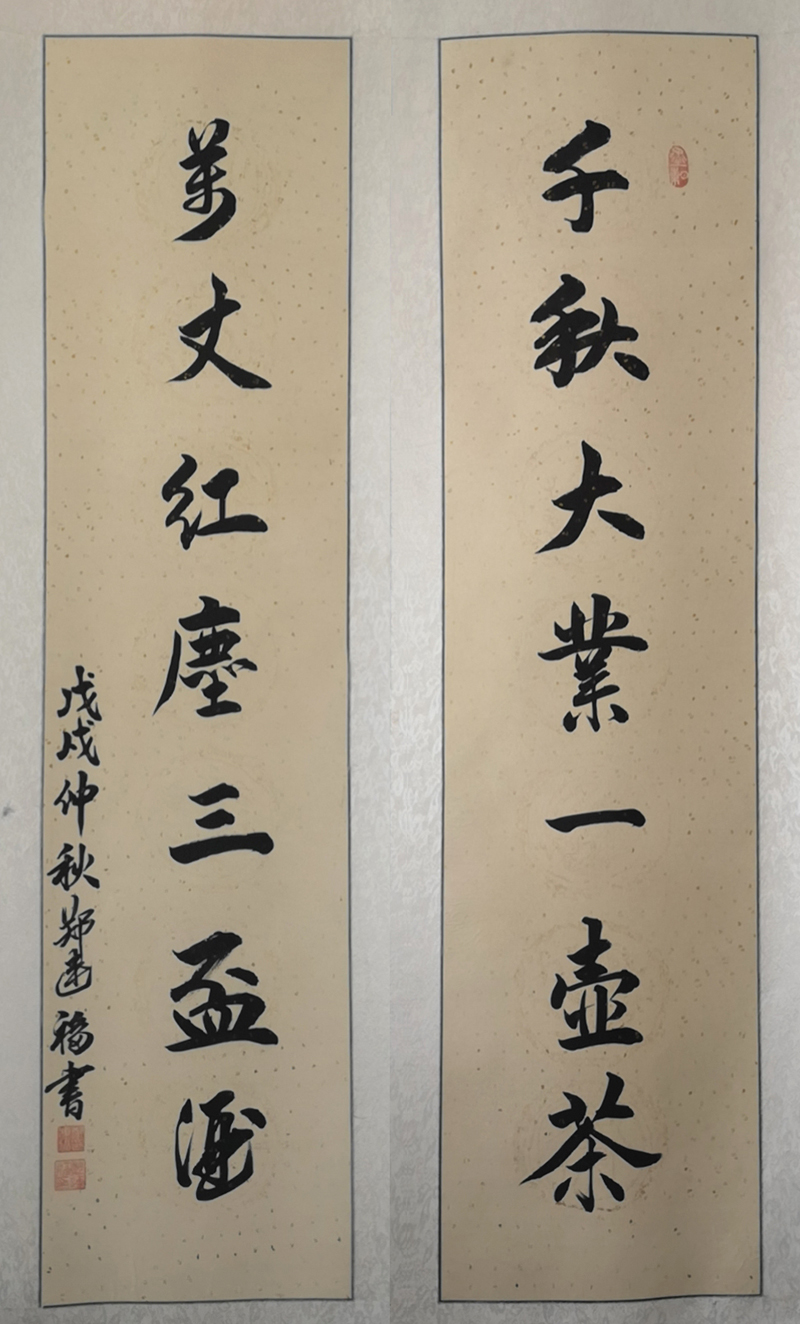 千秋大業一壺茶
萬丈紅塵三盃酒
戊戌仲秋鄭建福書